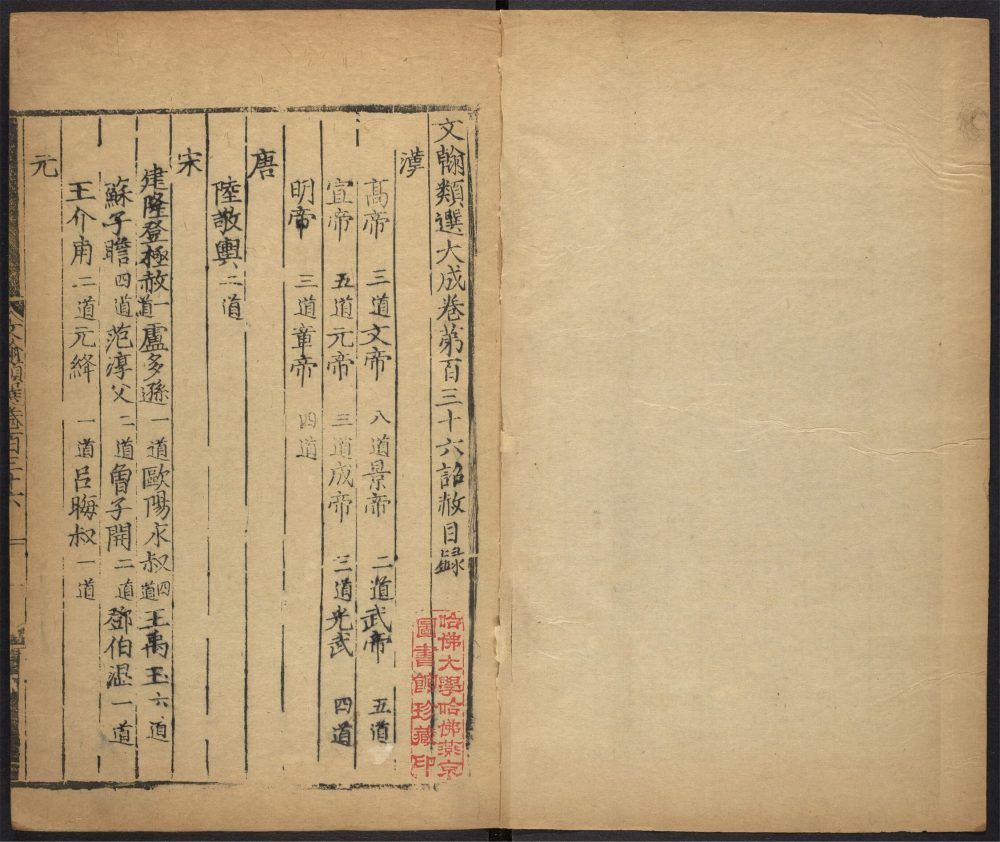 文翰類選大成卷第百三十六詔赦目錄
漢
高帝 三道文帝 八道景帝 二道武帝 五道
宣帝 五道元帝 三道成帝 三道光武 四道
明帝 三道章帝 四道
唐
陸敬輿二道
宋
建隆登極赦一道盧多遜一道歐陽永叔四道王禹玉六道
蘇子瞻四道范淳父二道曾子開二道鄧伯溫一道
王介甫二道元絳 一道呂晦叔一道
元
文翰類選卷一百三十六 一
哈佛大學哈佛燕京
圖書館珍藏印